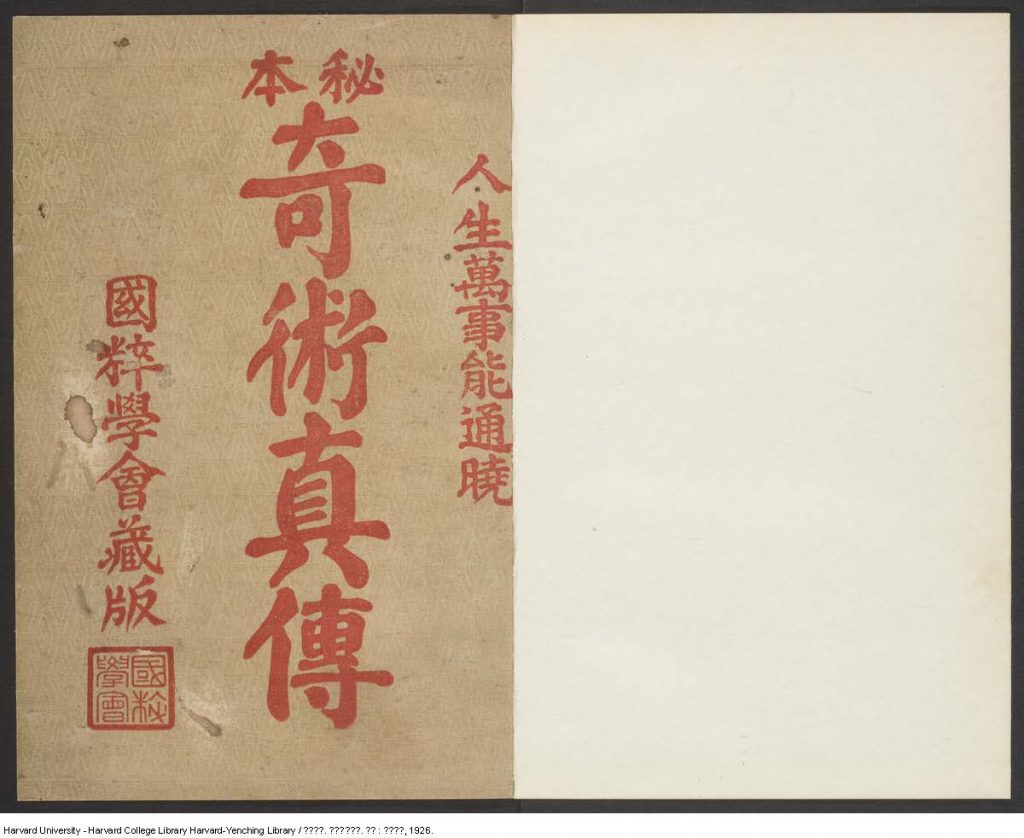 人生萬事能通曉
秘本
奇術真傳
國粹學會藏版
國粹學會
Harvard University - Harvard College Library Harvard-Yenching Library / ????. ??????. ?? : ????, 1926.